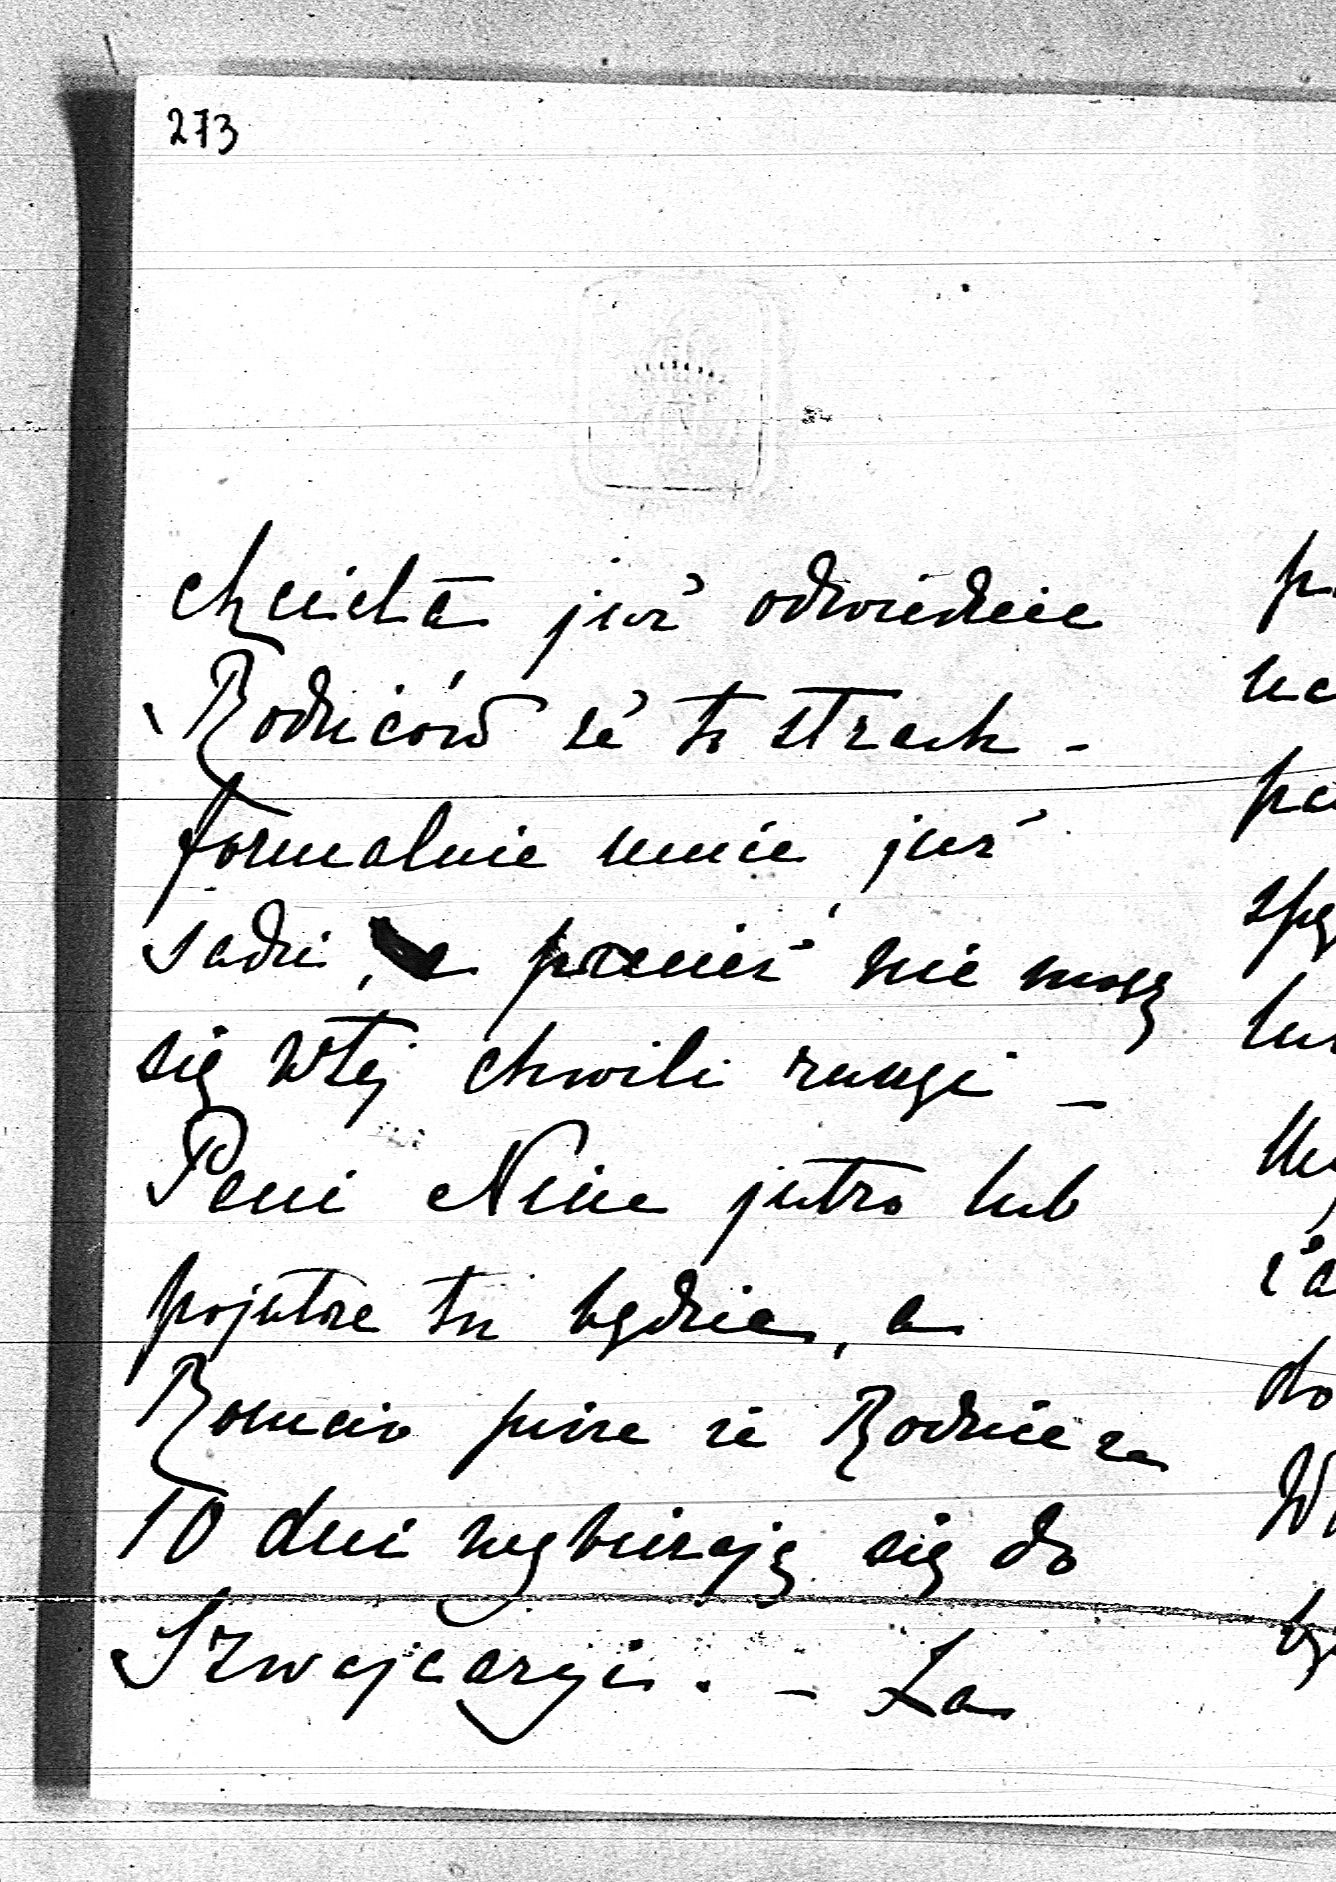 273
chciała już odwiedzić
Rodziców że to strach -
formalnie mnie już
sadzi, a przecież nie mogę
się w tej chwili ruszyć -
Pani Nina jutro lub
pojutrze tu będzie, a
Romcio pisze że Rodzice za
10 dni wybierają się do
Szwajcaryi. - Za